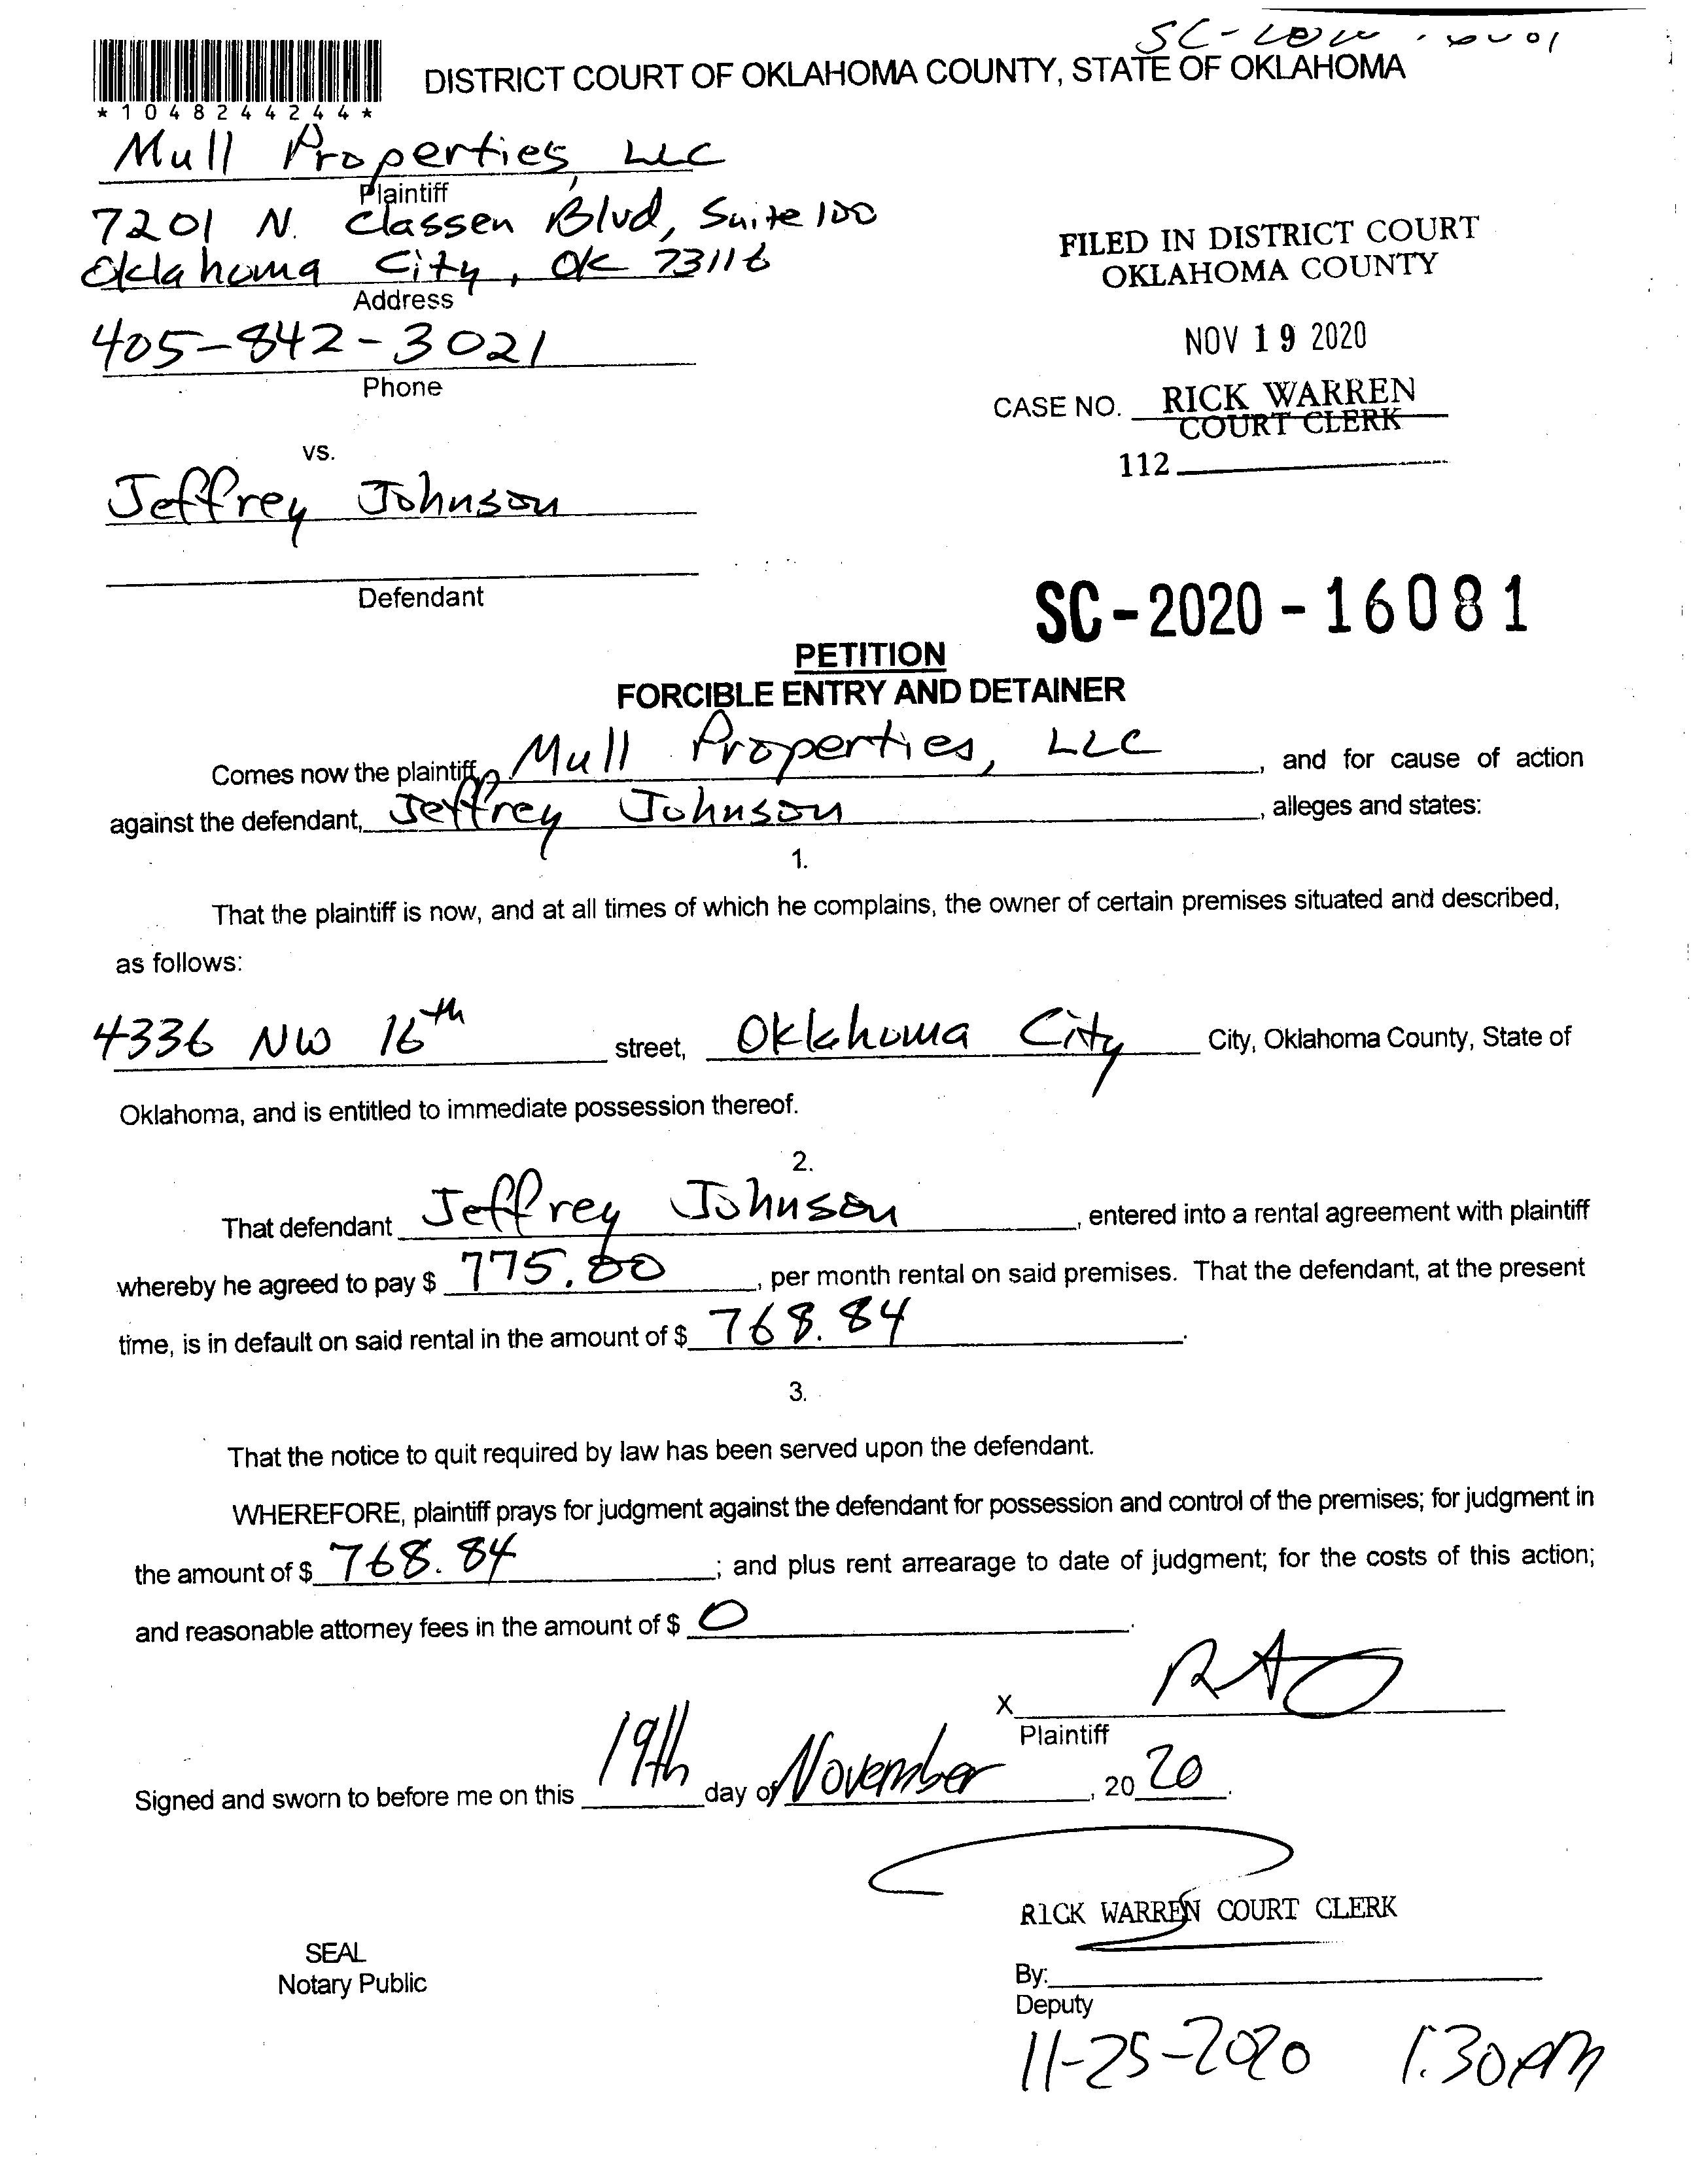 SC-
DISTRICT COURT OF OKLAHOMA COUNTY, STATE OF OKLAHOMA
*1048244244*
Mull Properties, LLC
Plaintiff
7201 N. Classen Blvd, Suite 100
Oklahoma City, OK 73116
Address
405-842-3021
Phone
FILED IN DISTRICT COURT
OKLAHOMA COUNTY
NOV 19 2020
CASE NO. RICK WARREN
COURT CLERK
112
vs.
Jeffrey Johnson
Defendant
SC-2020-16081
PETITION
FORCIBLE ENTRY AND DETAINER
Comes now the plaintiff, Mull Properties, LLC, and for cause of action
against the defendant, Jeffrey Johnson, alleges and states:
1.
That the plaintiff is now, and at all times of which he complains, the owner of certain premises situated and described,
as follows:
4336 NW 16th street, Oklahoma City City, Oklahoma County, State of
Oklahoma, and is entitled to immediate possession thereof.
2.
That defendant Jeffrey Johnson, entered into a rental agreement with plaintiff
whereby he agreed to pay $ 775.00, per month rental on said premises. That the defendant, at the present
time, is in default on said rental in the amount of $ 768.84.
3.
That the notice to quit required by law has been served upon the defendant.
WHEREFORE, plaintiff prays for judgment against the defendant for possession and control of the premises; for judgment in
the amount of $ 768.84; and plus rent arrearage to date of judgment; for the costs of this action;
and reasonable attorney fees in the amount of $ 0.
X
Plaintiff
Signed and sworn to before me on this 19th day of November, 2020.
RICK WARREN COURT CLERK
SEAL
Notary Public
By:
Deputy
11-25-2020 1:30 PM